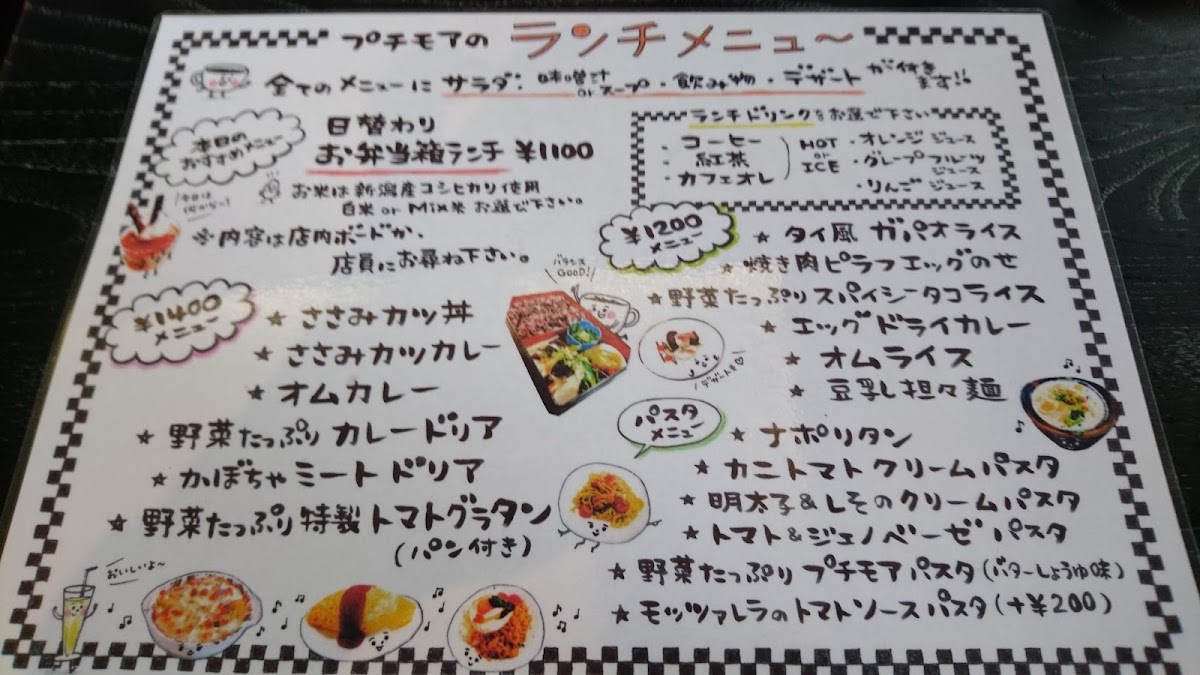 プチモアの ランチメニュ〜
全てのメニューに サラダ・味噌汁orスープ・飲み物・デザートが付きます!!
本日の
おすすめメニュー
日替わり
お弁当箱ランチ ¥1100
お米は新潟産コシヒカリ使用
白米 or Mix米 お選び下さい。
※内容は店内ボードか、
店員にお尋ね下さい。
ランチドリンクをお選び下さい
・コーヒー
・紅茶
・カフェオレ
HOT
or
ICE
・オレンジジュース
・グレープフルーツ
ジュース
・りんごジュース
¥1200
メニュー
★ タイ風 ガパオライス
★ 焼き肉ピラフエッグのせ
★ 野菜たっぷりスパイシータコライス
★ エッグドライカレー
★ オムライス
★ 豆乳担々麺
バランス
GOOD!
デザートも♡
¥1400
メニュー
★ ささみカツ丼
★ ささみカツカレー
★ オムカレー
★ 野菜たっぷり カレードリア
★ かぼちゃミートドリア
★ 野菜たっぷり特製トマトグラタン
(パン付き)
パスタ
メニュー
★ ナポリタン
★ カニトマトクリームパスタ
★ 明太子&しそのクリームパスタ
★ トマト&ジェノベーゼパスタ
★ 野菜たっぷりプチモアパスタ(バターしょうゆ味)
★ モッツァレラのトマトソースパスタ(+¥200)
おいしいよ〜